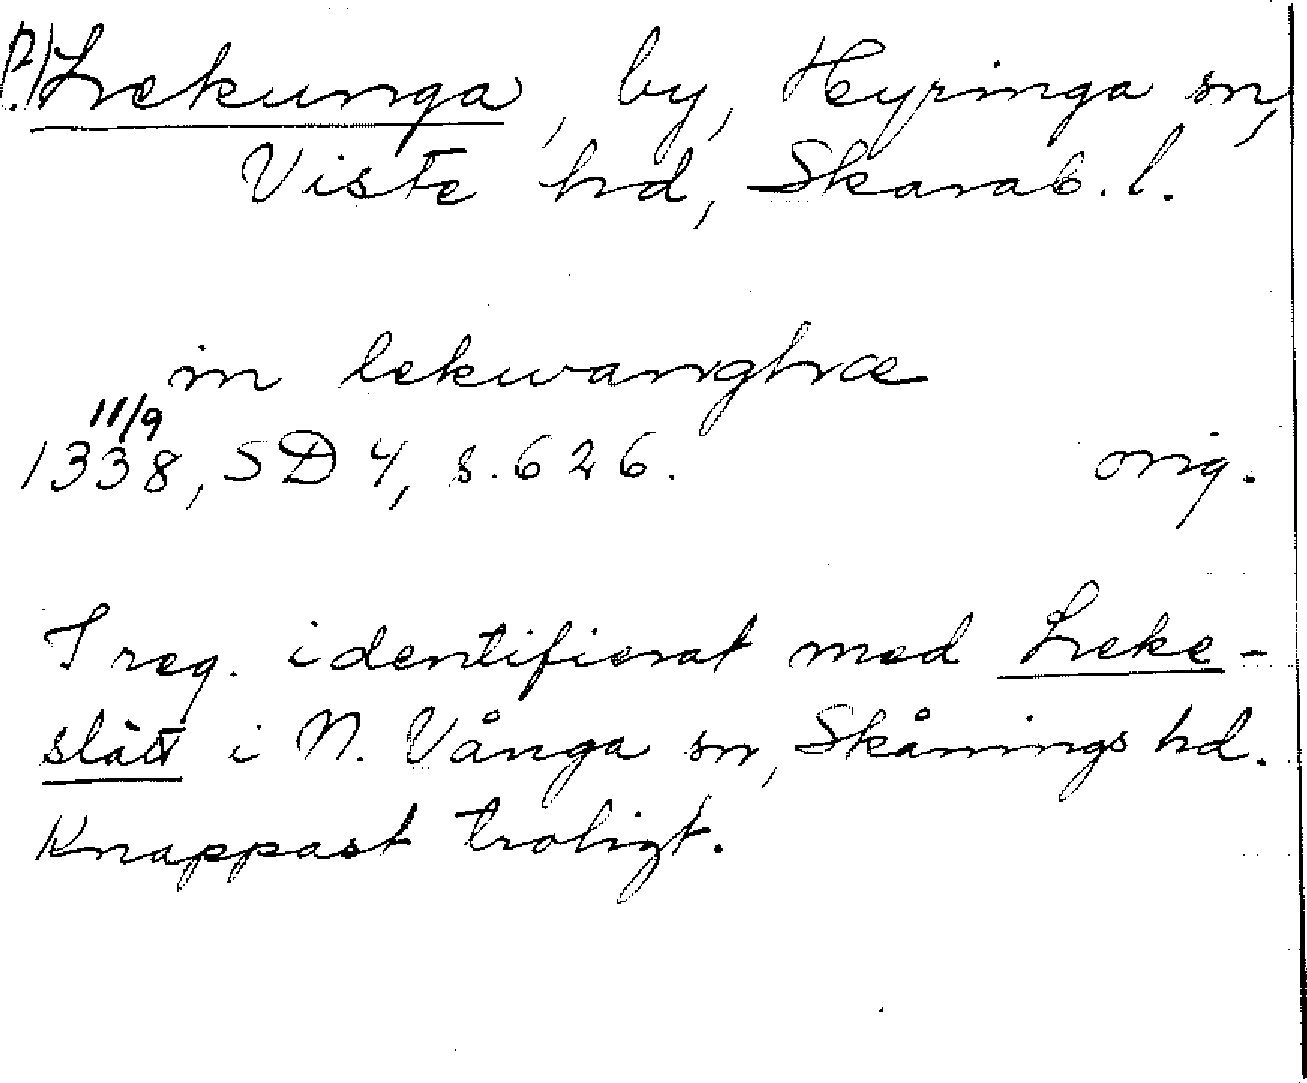 (?) Lekunga, by, Hyringa sn,
Viste hd, Skarab. l.
in lekwanghæ
11/9
1338, SD 4, s. 626. orig.
I reg. identifierat med Leke-
slätt i N. Vånga sn, Skånings hd.
Knappast troligt.